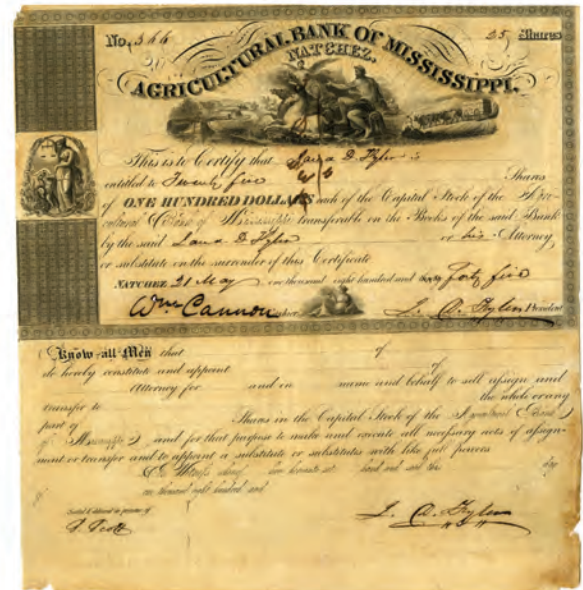 No. 366
25 Shares
AGRICULTURAL BANK OF MISSISSIPPI.
NATCHEZ.
This is to Certify that D. is
entitled to Twenty five Shares
of ONE HUNDRED DOLLARS each of the Capital Stock of the Agri-
cultural Bank of Mississippi transferable on the Books of the said Bank
by the said D. or his Attorney
or substitute on the surrender of this Certificate
NATCHEZ 21 May one thousand eight hundred and Forty five
Wm Cannon Cashier President
Know all Men that of
do hereby constitute and appoint of
Attorney for and in name and behalf to sell assign and
transfer to the whole or any
part of Shares in the Capital Stock of the Agricultural Bank
of Mississippi and for that purpose to make and execute all necessary acts of assign-
ment or transfer and to appoint a substitute or substitutes with like full powers
In Witness whereof have hereunto set hand and seal this day
one thousand eight hundred and
Sealed & delivered in presence of
Scott